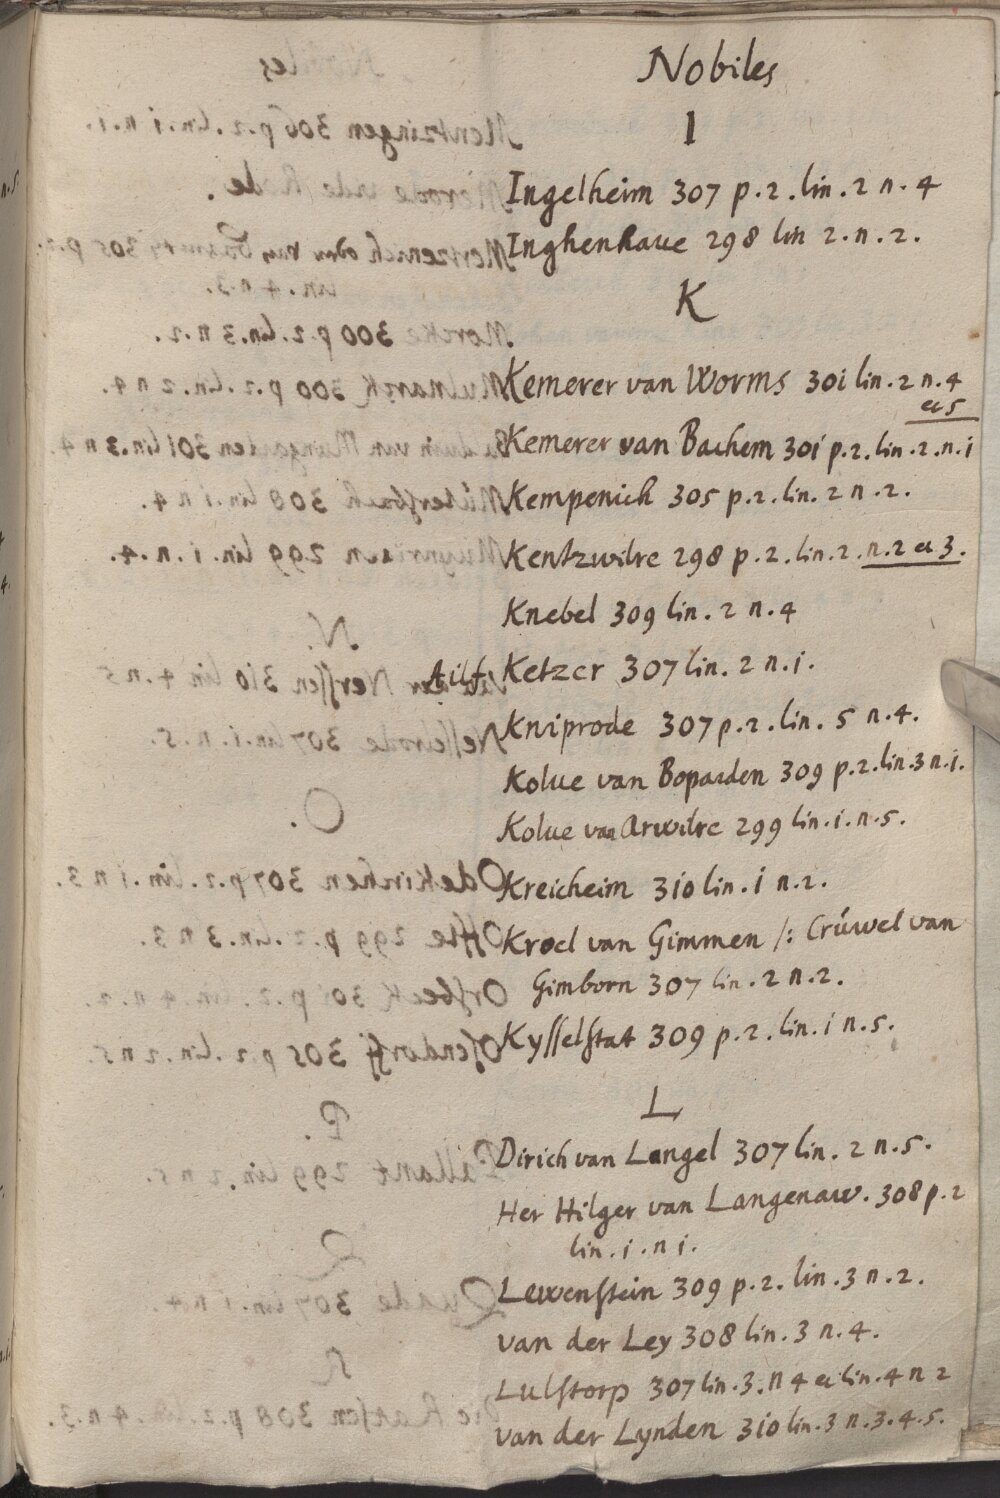 Nobiles
I
Ingelheim 307 p. 2. lin. 2 n. 4
Inghenhaue 298 lin 2. n. 2.
K
Kemerer van Worms 30i lin. 2 n. 4
et 5
Kemerer van Bachem 30i p. 2. lin. 2. n. i
Kempenich 305 p. 2. lin. 2 n. 2.
Kentzwilre 298 p. 2. lin. 2. n. 2 et 3.
Knebel 309 lin. 2 n. 4
Ailf Ketzer 307 lin. 2 n. i.
Kniprode 307 p. 2. lin. 5 n. 4.
Kolue van Boparden 309 p. 2. lin. 3 n. i.
Kolue van Arwilre 299 lin. i. n. 5.
Kreicheim 3i0 lin. i n. 2.
Kroel van Gimmen /: Crúwel van
Gimborn 307 lin. 2 n. 2.
Kysselstat 309 p. 2. lin. i n. 5.
L
Dirich van Langel 307 lin. 2 n. 5.
Her Hilger van Langenaw. 308 p. 2
lin. i. n i.
Lewenstein 309 p. 2. lin. 3 n. 2.
van der Ley 308 lin. 3 n. 4.
Lulstorp 307 lin. 3. n 4 et lin. 4 n 2
van der Lynden 3i0 lin. 3 n. 3. 4. 5.